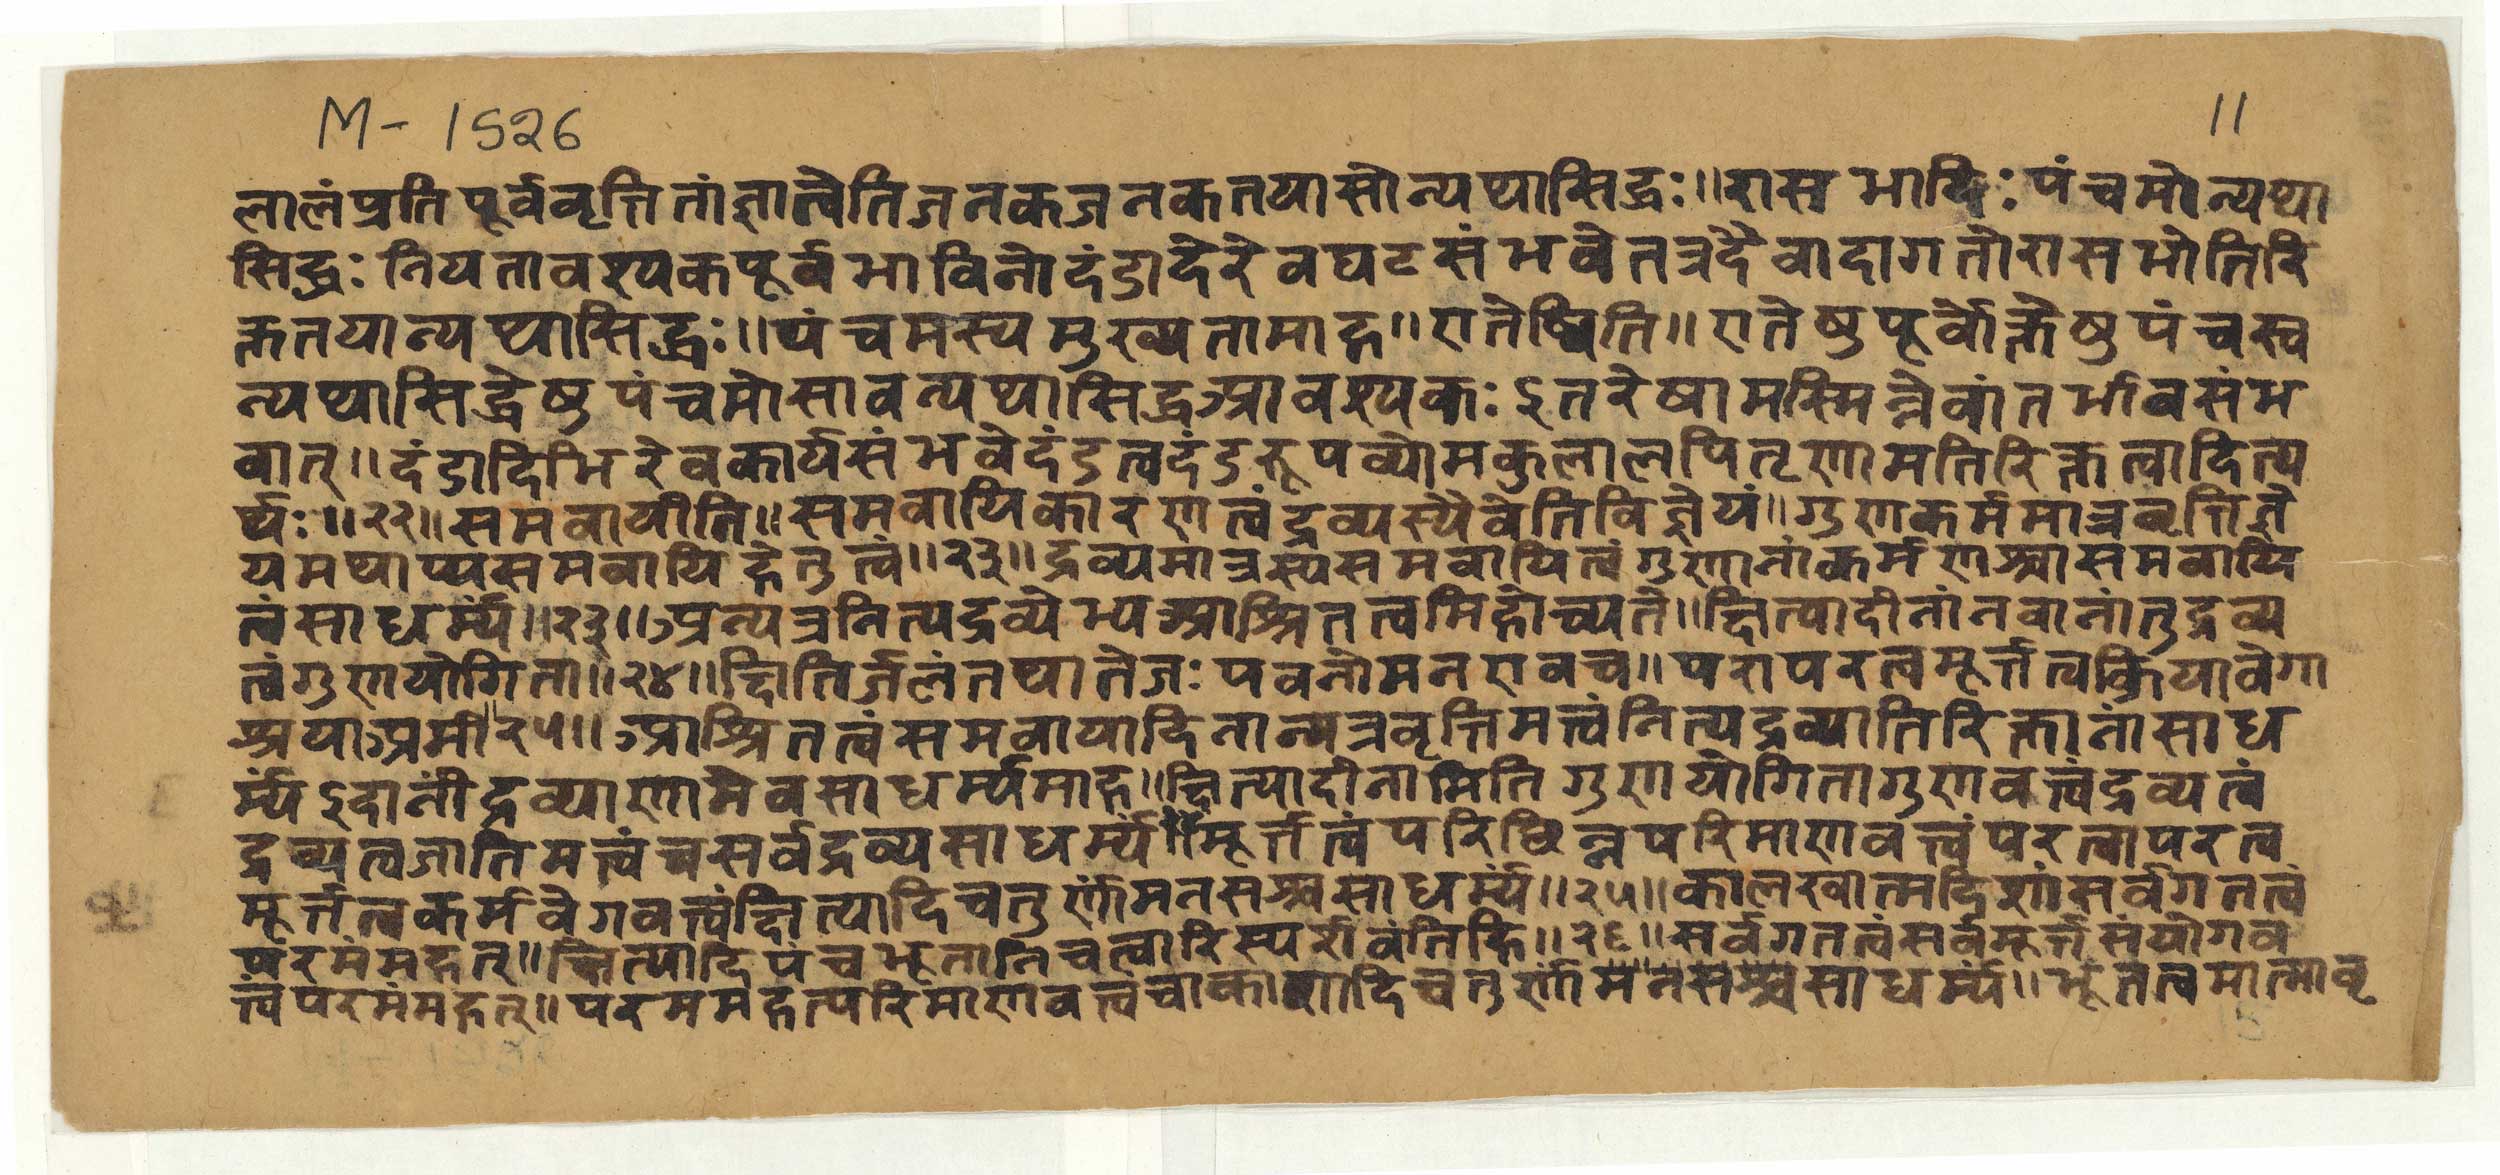 M-1526
11
लालंप्रति पूर्ववृत्तितांज्ञात्वेतिजनकजनकतयासोन्यथासिद्धः॥रासभादिः पंचमोन्यथा
सिद्धः नियतावश्यकपूर्वभाविनोदंडादेरेवघटसंभवेतत्रदैवादागतोरासभोतिरि
क्ततयान्यथासिद्धः॥पंचमस्यमुख्यतामाह॥एतेष्विति॥एतेषुपूर्वोक्तेषुपंचस्व
न्यथासिद्धेषुपंचमोसावन्यथासिद्धआवश्यकः इतरेषामस्मिन्नेवांतर्भावसंभ
वात्॥दंडादिभिरेवकार्यसंभवेदंडत्वदंडरूपव्योमकुलालपितृणामतिरिक्तत्वादित्य
र्थः॥२२॥समवायीति॥समवायिकारणत्वंद्रव्यस्यैवेतिविज्ञेयं॥गुणकर्ममात्रवृत्तिज्ञे
यमथाप्यसमवायिहेतुत्वं॥२३॥द्रव्यमात्रस्यसमवायित्वंगुणानांकर्मणाश्चासमवायि
त्वंसाधर्म्यं॥२३॥अन्यत्रनित्यद्रव्येभ्यआश्रितत्वमिहोच्यते॥क्षित्यादीनांनवानांतुद्रव्य
त्वंगुणयोगिता॥२४॥क्षितिर्जलंतथातेजः पवनोमनएवच॥परापरत्वमूर्त्तत्वक्रियावेगा
श्रयाअमी॥२५॥आश्रितत्वंसमवायादिनान्यत्रवृत्तिमत्त्वंनित्यद्रव्यातिरिक्तानांसाध
र्म्यं इदानींद्रव्याणामेवसाधर्म्यमाह॥क्षित्यादीनामिति गुणयोगितागुणवत्त्वंद्रव्यत्वं
द्रव्यत्वजातिमत्त्वंचसर्वद्रव्यसाधर्म्यं॥मूर्त्तत्वंपरिछिन्नपरिमाणवत्त्वंपरत्वापरत्व
मूर्त्तत्वकर्मवेगवत्त्वंक्षित्यादिचतुर्णांमनसश्चसाधर्म्यं॥२५॥कालखात्मदिशांसर्वगतत्वं
परमंमहत्॥क्षित्यादिपंचभूतानिचत्वारिस्पर्शवंतिहि॥२६॥सर्वगतत्वंसर्वमूर्त्तसंयोगव
त्त्वंपरमंमहत्॥परममहत्परिमाणवत्त्वंचाकाशादिचतुर्णांमनसश्चसाधर्म्यं॥भूतत्वमात्मावृ